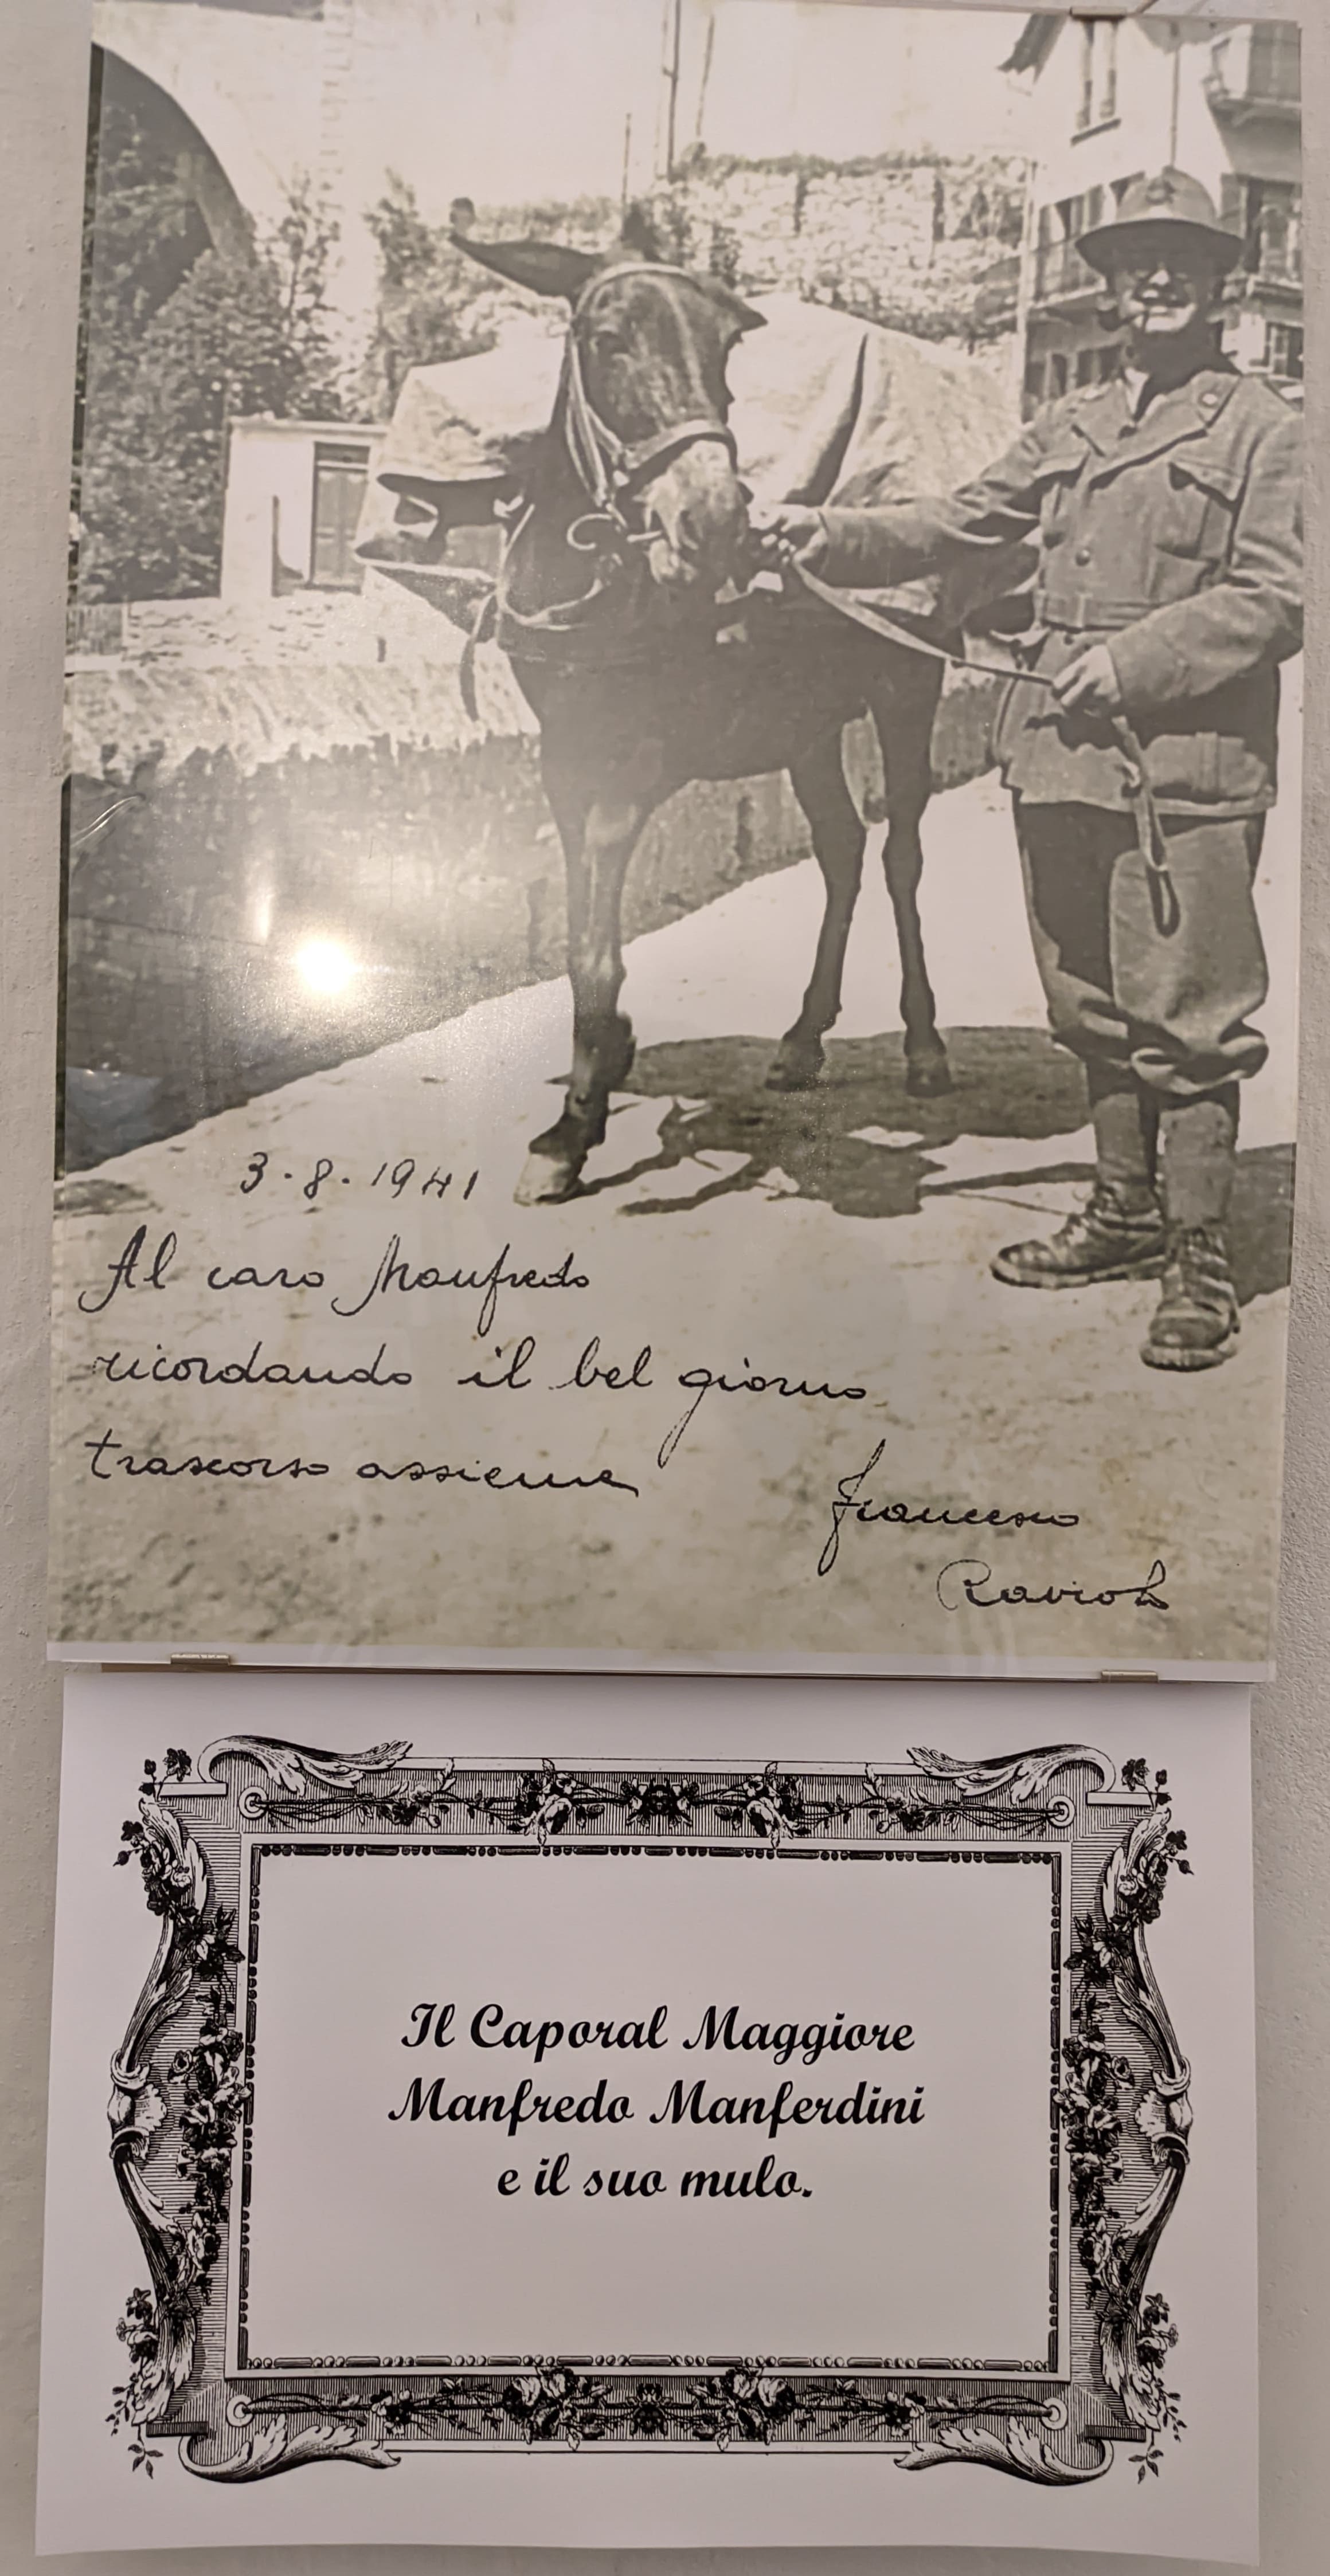 3·8·1941
Al caro Manfredo
ricordando il bel giorno
trascorso assieme
Francesco
Ravioli
Il Caporal Maggiore
Manfredo Manferdini
e il suo mulo.